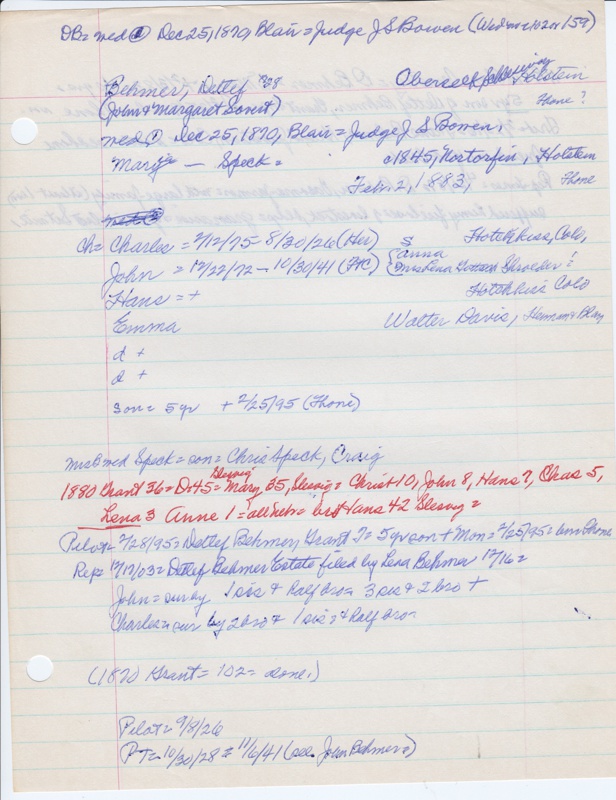 DB= med ① Dec 25, 1870, Blair = Judge J S Bowen (Wed 102 or 159)
Behmer, Detlef Holstein
(John & Margaret ) Thone?
med ① Dec 25, 1870, Blair = Judge J S Bowen,
Mary — Speck = c1845, Nortorfin, Holstein
Feb. 2, 1883, Thone
Ch= Charles = 2/12/75 - 8/30/26 (Her) S Hotchkiss, Colo,
John = 12/22/72 — 10/30/41 (FHC) {anna Shroeder!
Hans = + Hotchkiss Colo
Emma Walter Davis, Herman & Blair
d +
d +
son = 5 yr + 2/25/95 (Thone)
Mrs B med Speck = son = Chris Speck, Craig
1880 Grant 36 = D 45 = Mary 35, Slesvig = Christ 10, John 8, Hans 7, Chas 5,
Lena 3 Anne 1 = all Nebr = bro Hans 42 Slesvg =
Pilot = 2/28/95 = Detlef Behmer, Grant T = 5 yr son + Mon = 2/25/95 = Thone
Rep = 12/17/03 = Detlef Behmer Estate filed by Lena Behmer 12/16 =
John = sur by 1 sis & half bro = 3 sis & 2 bro +
Charles = sur by 2 bro & 1 sis = & half bro =
(1870 Grant = 102 = alone.)
Pilot = 9/8/26
PT = 10/30/28 & 11/6/41 (see John Behmer)